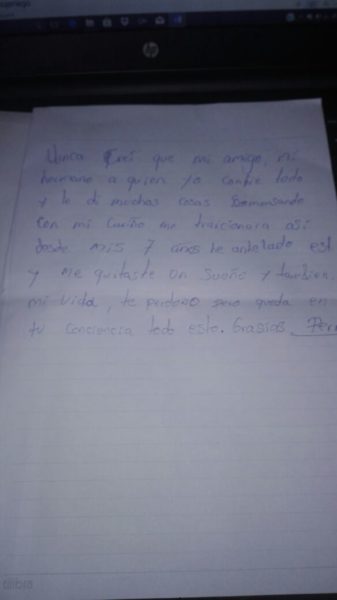 Nunca Creí que mi amigo, mi
hermano a quien yo confie todo
y le di muchas cosas
Con mi Cariño me traicionara así
desde mis 7 años he anhelado est
y me quitaste un sueño y tambien
mi vida, te perdono pero queda en
tu conciencia todo esto. Grasias
tilibra